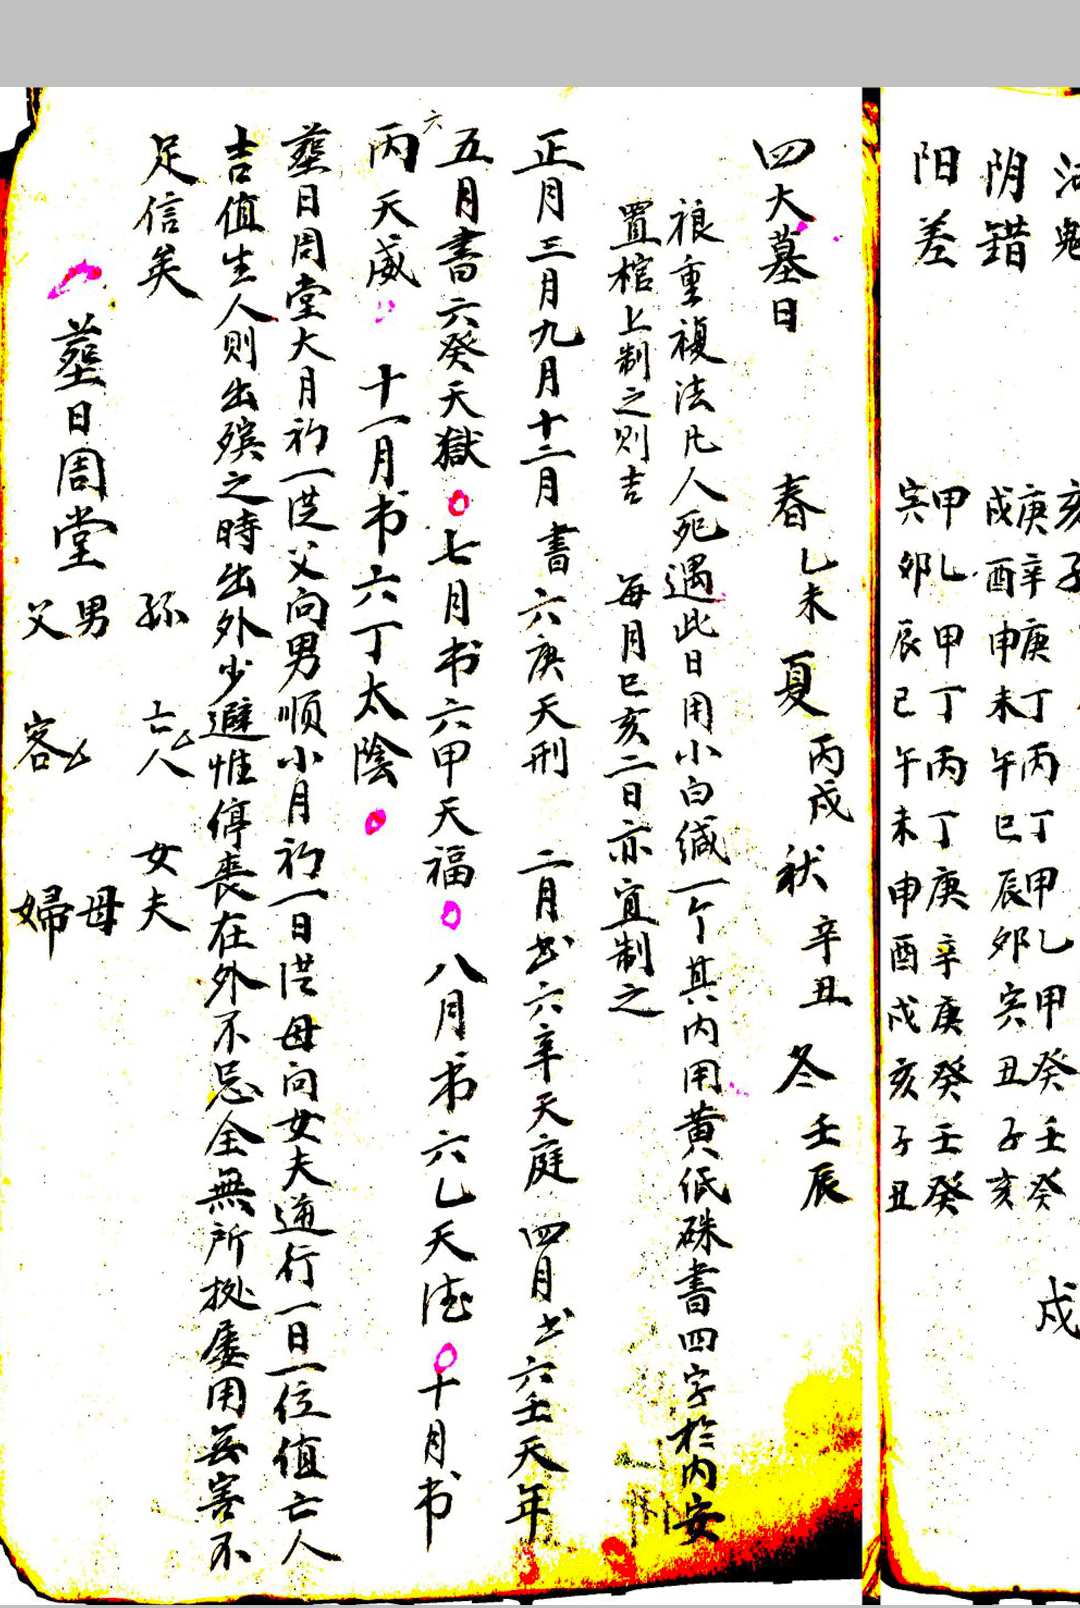 阳差
甲乙甲丁丙丁庚辛庚癸壬癸
寅卯辰巳午未申酉戌亥子丑
阴错
庚辛庚丁丙丁甲乙甲癸壬癸
戌酉申未午巳辰卯寅丑子亥
戍
四大墓日 春乙未 夏丙戍 秋辛丑 冬壬辰
重複法凡人死遇此日用小白缄一个其内用黄低硃書四字於内安
置棺上制之则吉 每月巳亥二日亦宜制之
正月三月九月十二月書六庚天刑 二月书六辛天庭 四月书六壬天年
六
五月書六癸天獄 七月书六甲天福 八月书六乙天德 十月书
丙天威 十一月书六丁太陰
塟日周堂大月初一從父向男顺小月初一日從母向女夫逆行一日一位值亡人
吉值生人则出殡之時出外少避惟停喪在外不忌全無所拠屡用無害不
足信矣
塟日周堂
孫 亡人 女夫
男 母
父 客 婦